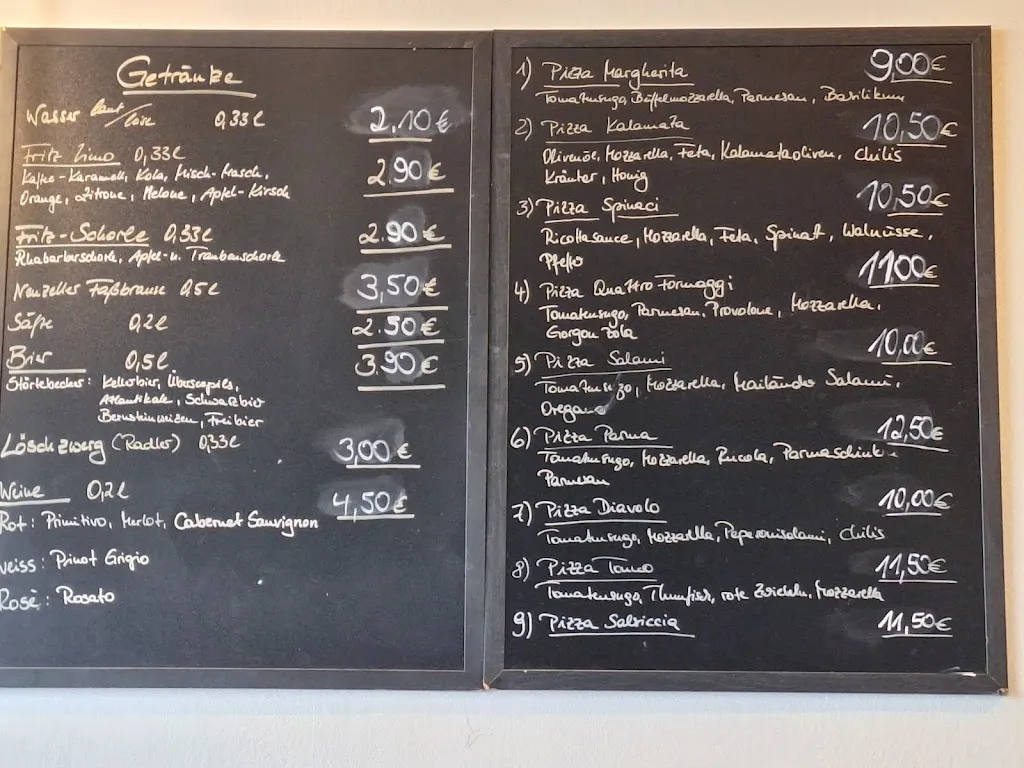 Getränke
Wasser laut/leise 0,33l 2,10€
Fritz Limo 0,33l 2.90€
Kaffee-Karamell, Kola, Misch-Masch,
Orange, Zitrone, Melone, Apfel-Kirsch
Fritz-Schorle 0,33l 2.90€
Rhabarberschorle, Apfel-u. Traubenschorle
Neuzeller Faßbrause 0,5l 3,50€
Säfte 0,2l 2.50€
Bier 0,5l 3.90€
Störtebecker: Kellerbier, Übersee pils,
Atlantikale, Schwarzbier
Bernsteinweizen, Freibier
Löschzwerg (Radler) 0,33l 3,00€
Weine 0,2l 4,50€
Rot: Primitivo, Merlot, Cabernet Sauvignon
weiss: Pinot Grigio
Rosé: Rosato
1) Pizza Margherita 9,00€
Tomatensugo, Büffelmozzarella, Parmesan, Basilikum
2) Pizza Kalamata 10,50€
Olivenöl, Mozzarella, Feta, Kalamataoliven, Chilis
Kräuter, Honig
3) Pizza Spinaci 10,50€
Ricottasauce, Mozzarella, Feta, Spinat, Walnüsse,
Pfeffer
4) Pizza Quattro Formaggi 11,00€
Tomatensugo, Parmesan, Provolone, Mozzarella,
Gorgonzola
5) Pizza Salami 10,00€
Tomatensugo, Mozzarella, Mailänder Salami,
Oregano
6) Pizza Parma 12,50€
Tomatensugo, Mozzarella, Rucola, Parmaschinken
Parmesan
7) Pizza Diavolo 10,00€
Tomatensugo, Mozzarella, Peperonisalami, Chilis
8) Pizza Tonno 11,50€
Tomatensugo, Thunfisch, rote Zwiebeln, Mozzarella
9) Pizza Salsiccia 11,50€